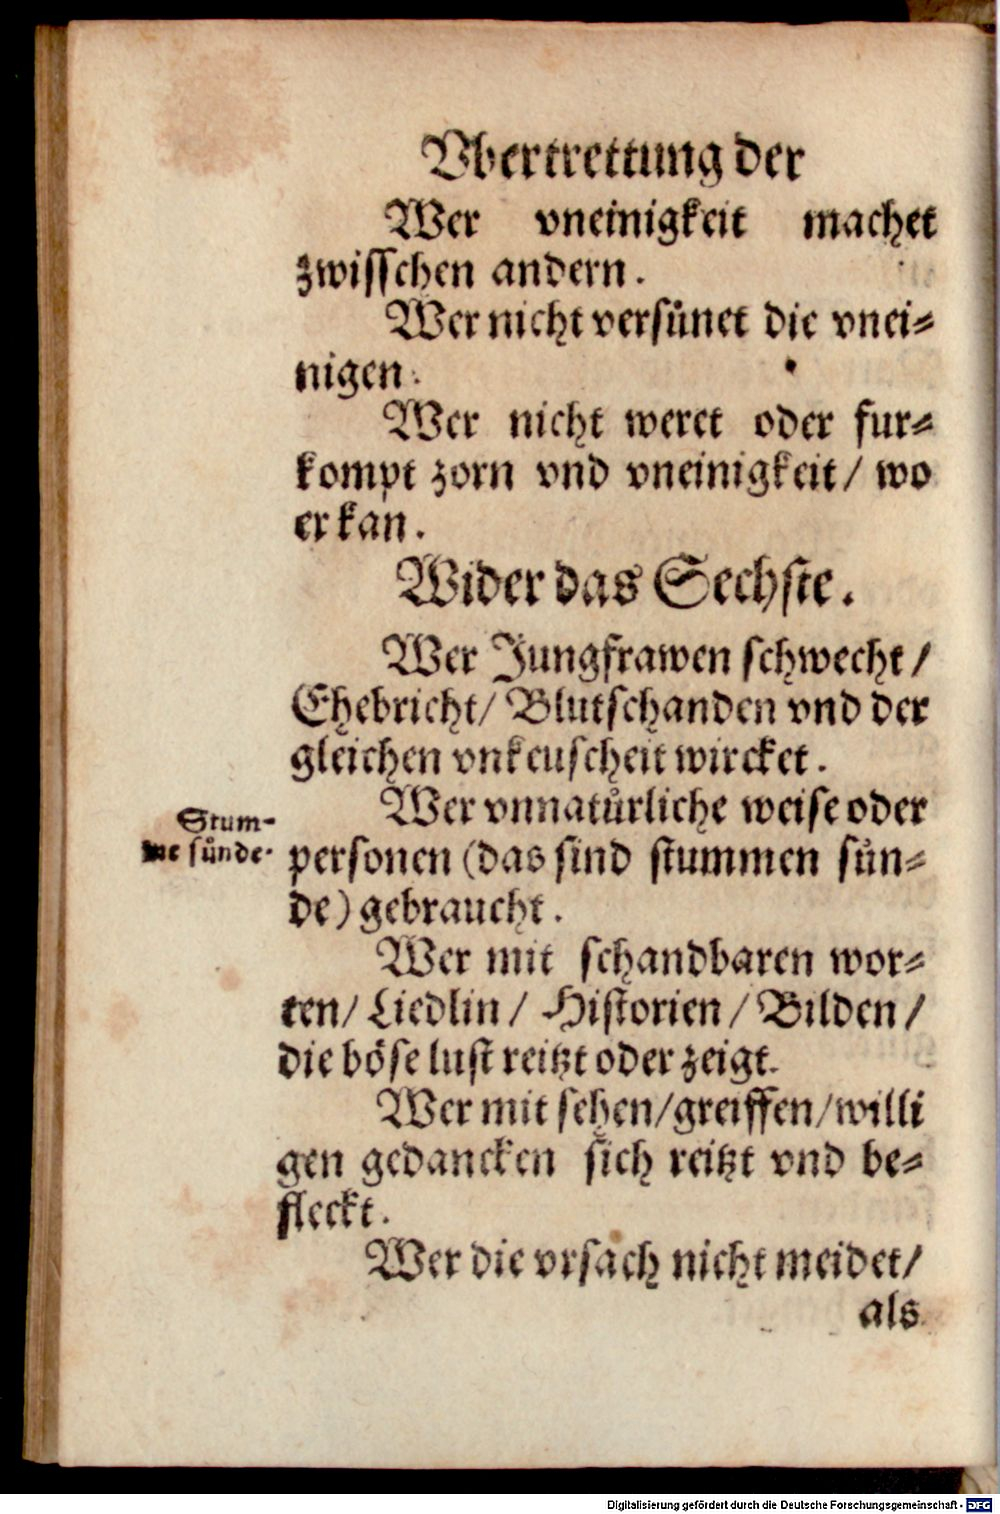 Vbertrettung der
Wer vneinigkeit machet
zwisschen andern.
Wer nicht versuͤnet die vnei⸗
nigen.
Wer nicht weret oder fur⸗
kompt zorn vnd vneinigkeit/ wo
er kan.
Wider das Sechste.
Wer Jungfrawen schwecht/
Ehebricht/ Blutschanden vnd der
gleichen vnkeuscheit wircket.
Wer vnnatuͤrliche weise oder
Stum⸗
me suͤnde.
personen (das sind stummen suͤn⸗
de) gebraucht.
Wer mit schandbaren wor⸗
ten/ Liedlin/ Historien/ Bilden/
die boͤse lust reitzt oder zeigt.
Wer mit sehen/greiffen/willi
gen gedancken sich reitzt vnd be⸗
fleckt.
Wer die vrsach nicht meidet/
als
Digitalisierung gefördert durch die Deutsche Forschungsgemeinschaft - DFG